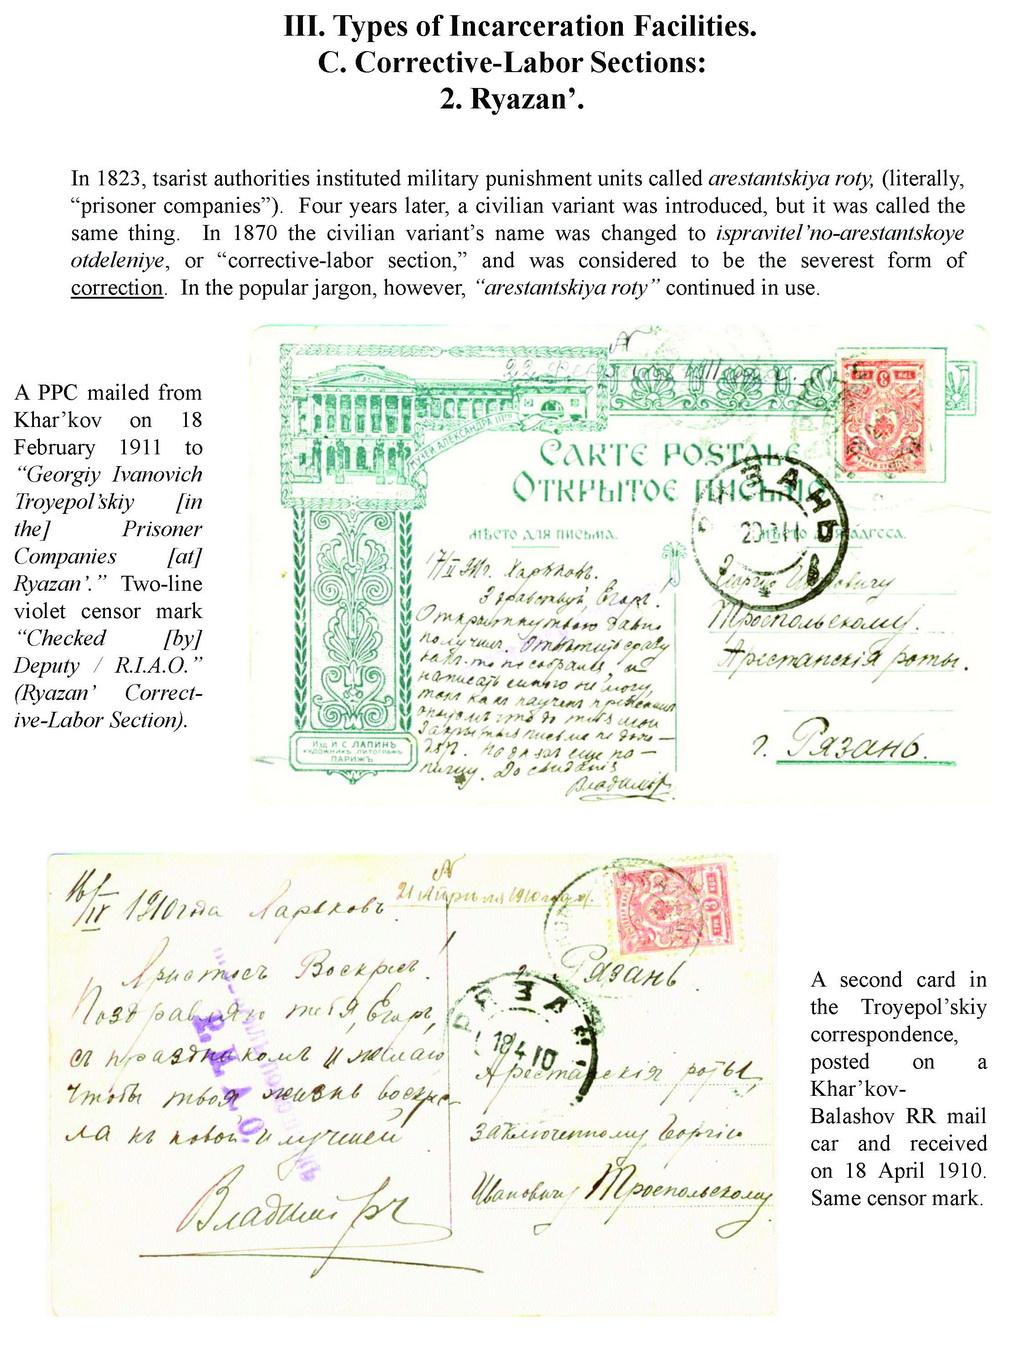 III. Types of Incarceration Facilities.
C. Corrective-Labor Sections:
2. Ryazan’.
In 1823, tsarist authorities instituted military punishment units called arestantskiya roty, (literally,
“prisoner companies”). Four years later, a civilian variant was introduced, but it was called the
same thing. In 1870 the civilian variant’s name was changed to ispravitel’no-arestantskoye
otdeleniye, or “corrective-labor section,” and was considered to be the severest form of
correction. In the popular jargon, however, “arestantskiya roty” continued in use.
A PPC mailed from
Khar’kov on 18
February 1911 to
“Georgiy Ivanovich
Troyepol’skiy [in
the] Prisoner
Companies [at]
Ryazan’.” Two-line
violet censor mark
“Checked [by]
Deputy / R.I.A.O.”
(Ryazan’ Correct-
ive-Labor Section).
МУЗЕЙ АЛЕКСАНДРА III
CARTE POSTALE
ОТКРЫТОЕ ПИСЬМО
РЯЗАНЬ
МѢСТО ДЛЯ ПИСЬМА.
17/II 911г. Харьковъ.
Здравствуй, Егоръ.
Открытку твою давно
получилъ. Отвѣтить сразу
До свиданія
Владиміръ
Изд. И. С. ЛАПИНЪ
ПАРИЖЪ
Георгію Ивановичу
Троепольскому.
Арестанскія роты.
г. Рязань.
16/IV 1910 года Харьковъ.
Христосъ Воскресъ!
Поздравляю тебя, Егоръ,
съ праздникомъ и желаю
чтобы твоя жизнь воскре-
ла къ новой и лучшей
Владиміръ
21 Апрѣля 1910 года
Р.И.А.О.
г. Рязань
РЯЗАНЬ
18 4 10
Арестанскія роты,
заключенному Георгію
Ивановичу Троепольскому
A second card in
the Troyepol’skiy
correspondence,
posted on a
Khar’kov-
Balashov RR mail
car and received
on 18 April 1910.
Same censor mark.